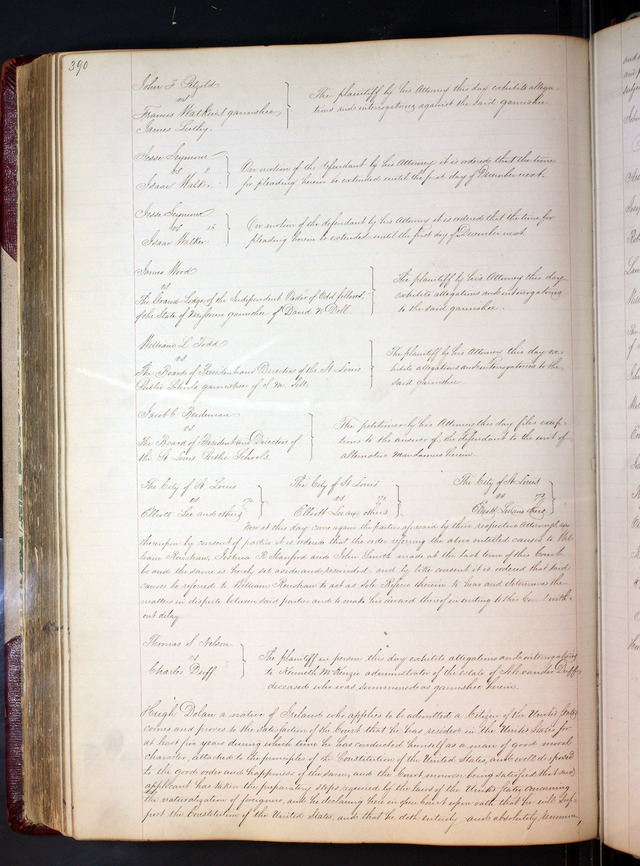 390
John F. Petzold
vs
Francis Watkins garnishee
James Luthy.
The plaintiff by his Attorney this day exhibits allega-
tions and interrogatories against the said garnishee
Jesse Seymour
vs
Isaac Walker.
On motion of the defendant by his Attorney it is ordered that the time
for pleading herein be extended until the first day of December next.
Jesse Seymour
vs
Isaac Walker
On motion of the defendant by his Attorney it is ordered that the time for
pleading herein be extended until the first day of December next
James Wood
vs
The Grand Lodge of the Independent Order of Odd fellows
of the State of Missouri garnishee of David N. Dell
The plaintiff by his Attorney this day
exhibits allegations and interrogatories
to the said garnishee.
William L. Todd
vs
The Board of President and Directors of the St Louis
Public Schools garnishee of S. M. Sill
The plaintiff by his Attorney this day ex-
hibits allegations and interrogatories to the
said Garnishee
Jacob C.
vs
The Board of President and Directors of
the St Louis Public Schools.
The petitioner by his Attorney this day files excep-
tions to the answer of the defendant to the writ of
alternative Mandamus herein.
The City of St Louis
vs
Elliott Lee and others
The City of St Louis
vs
Elliott Lee and others
The City of St Louis
vs
Elliott Lee and others
Now at this day come again the parties aforesaid by their respective Attorneys and
thereupon by consent of parties it is ordered that the order referring the above entitled causes to Wil-
liam Renshaw, Joshua P. Stanford and John Smith made at the last term of this Court
be and the same is hereby set aside and rescinded and by like consent it is ordered that said
causes be referred to William Renshaw to act as Sole Referee therein to hear and determine the
matters in dispute between said parties and to make his award thereof in writing to this Court with-
out delay
Thomas S. Nelson
vs
Charles Duff
The plaintiff in person this day exhibits allegations and interrogatories
to Kenneth McKenzie administrator of the estate of Alexander Duff
deceased who was summoned as garnishee herein.
Hugh Dolan a native of Ireland who applies to be admitted a Citizen of the United States
comes and proves to the satisfaction of the Court that he has resided in the United States for
at least five years during which time he has conducted himself as a man of good moral
character, attached to the principles of the Constitution of the United States, and well disposed
to the good order and happiness of the same, and the Court moreover being satisfied that said
applicant has taken the preparatory steps required by the laws of the United States concerning
the naturalization of foreigners, and he declaring here in open Court upon oath that he will sup-
port the Constitution of the United States, and that he doth entirely and absolutely renounce